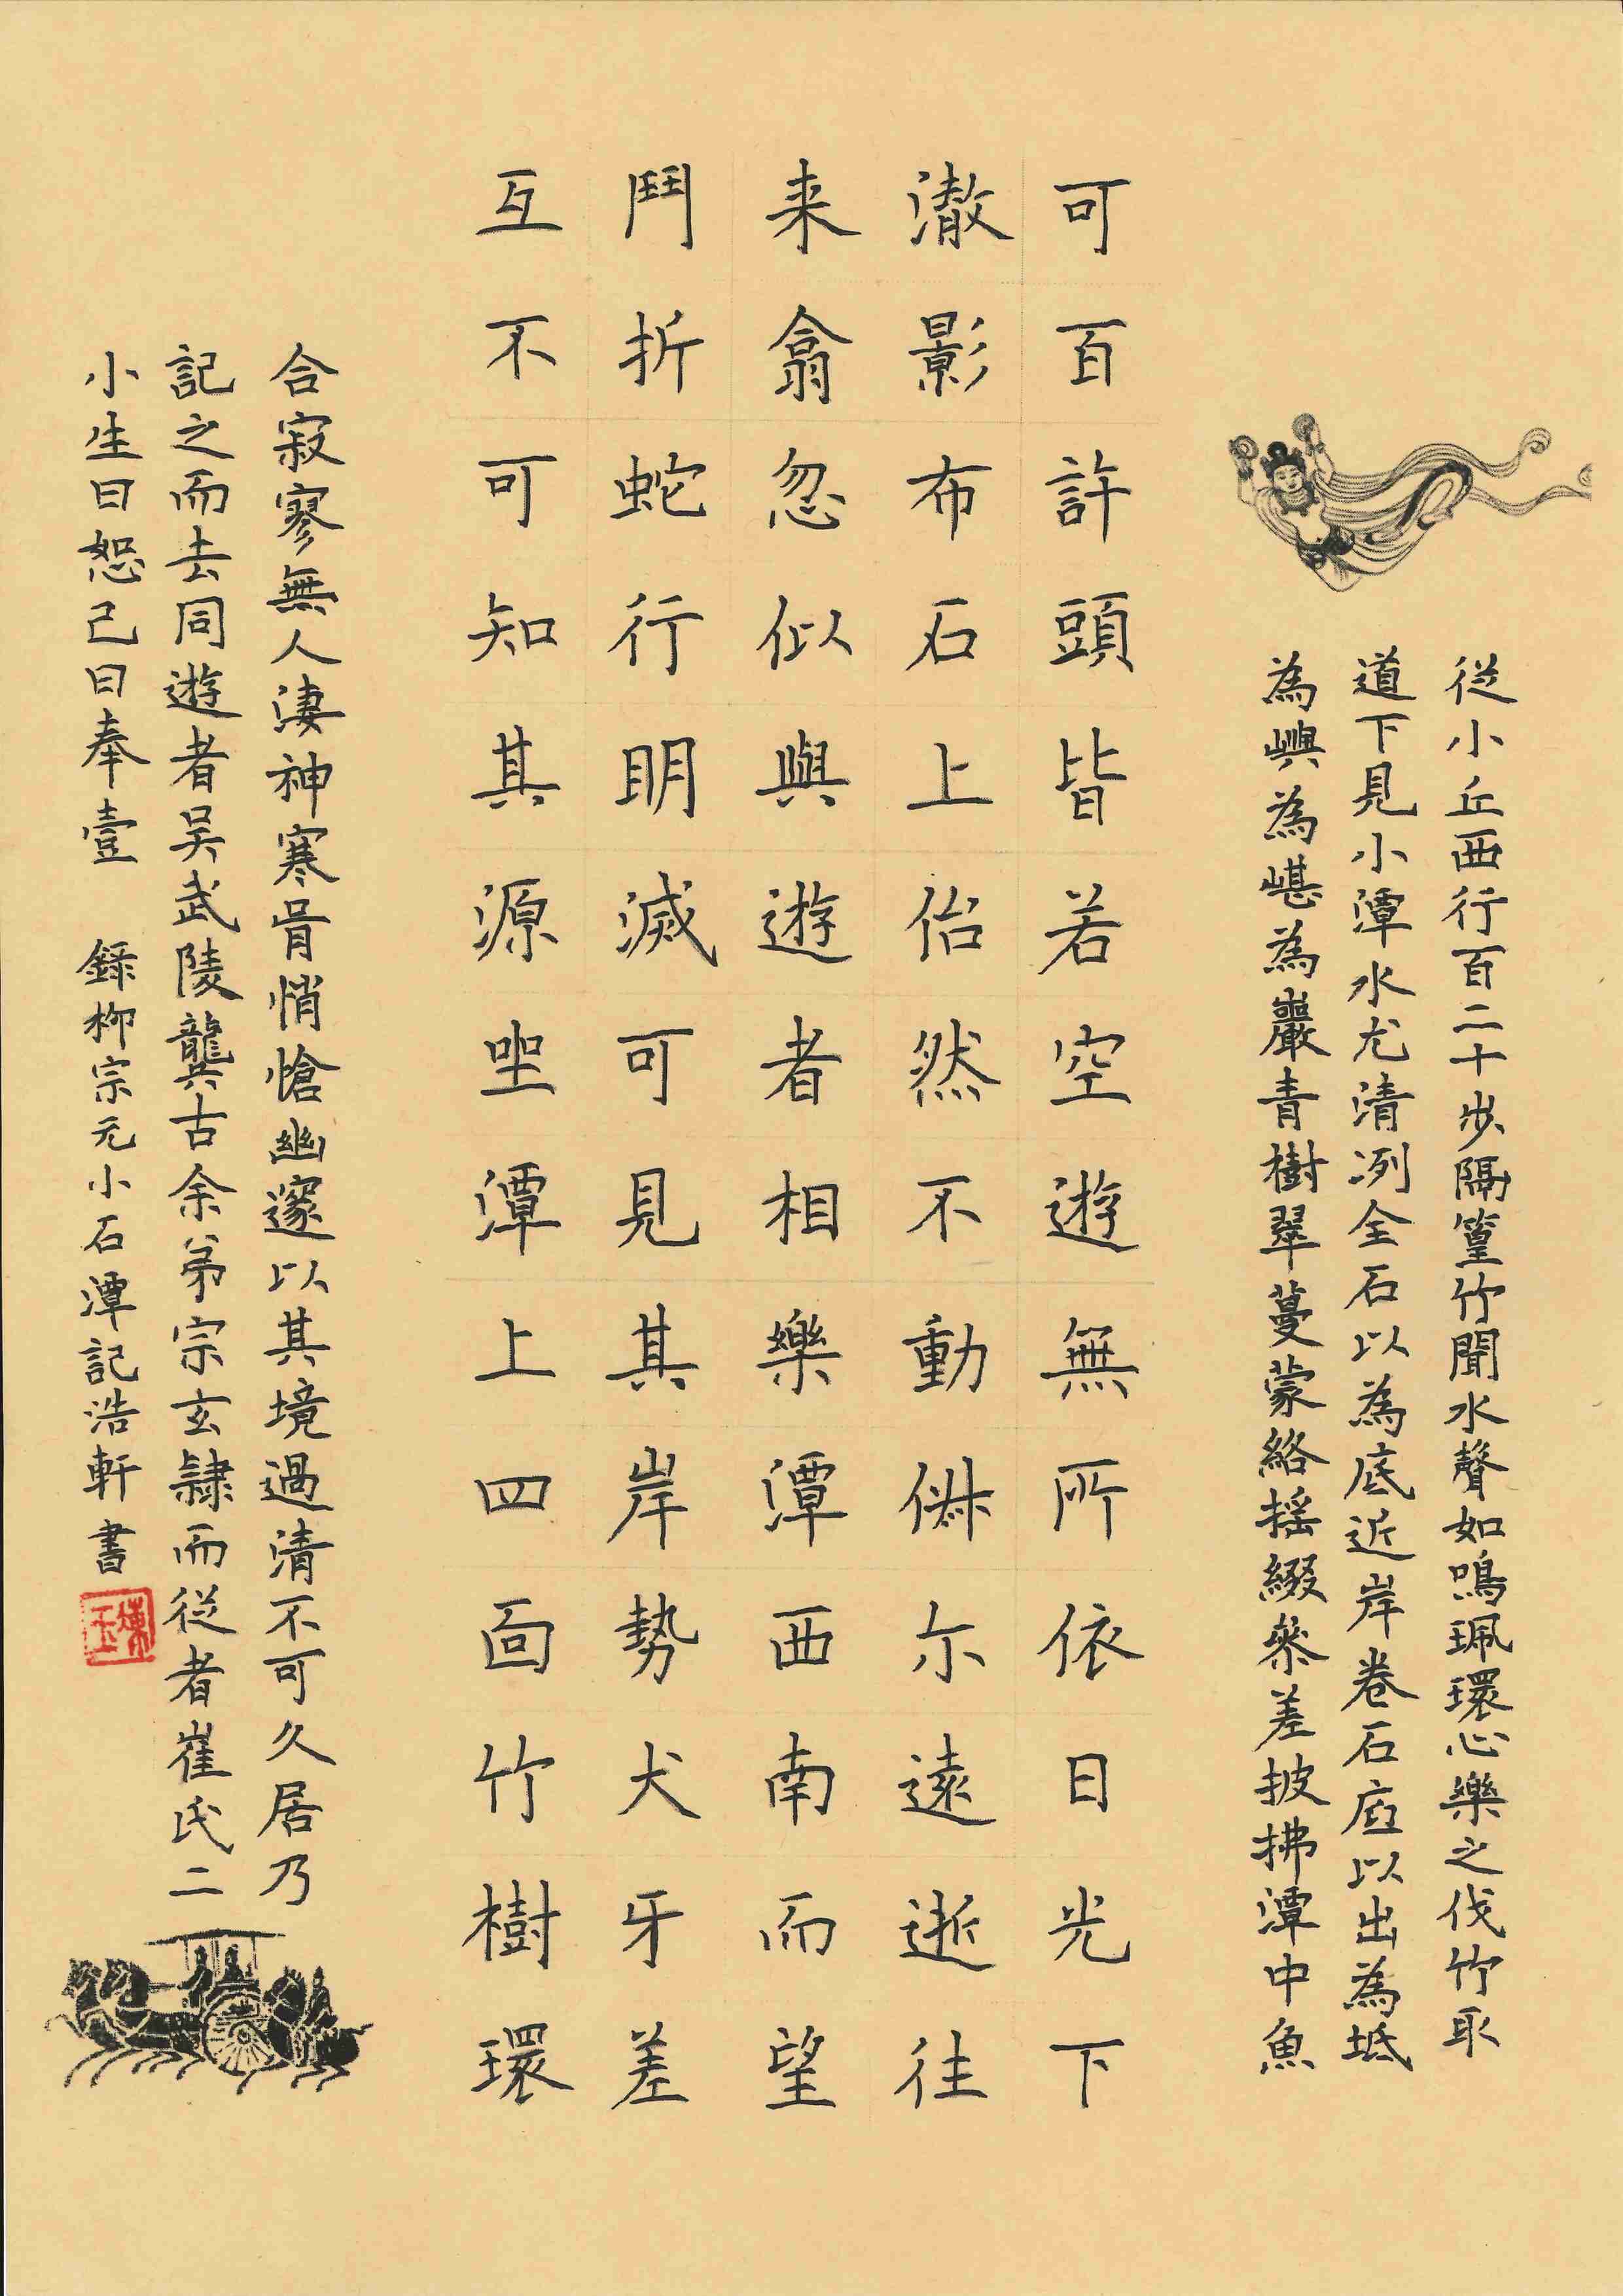 從小丘西行百二十步隔篁竹聞水聲如鳴珮環心樂之伐竹取
道下見小潭水尤清冽全石以為底近岸卷石底以出為坻
為嶼為嵁為巖青樹翠蔓蒙絡揺綴參差披拂潭中魚
可百許頭皆若空遊無所依日光下
澈影布石上佁然不動俶尓遠逝往
来翕忽似與遊者相樂潭西南而望
鬥折蛇行明滅可見其岸勢犬牙差
互不可知其源坐潭上四面竹樹環
合寂寥無人淒神寒骨悄愴幽邃以其境過清不可久居乃
記之而去同遊者吴武陵龔古余弟宗玄隸而従者崔氏二
小生曰恕己曰奉壹 録柳宗元小石潭記浩軒書